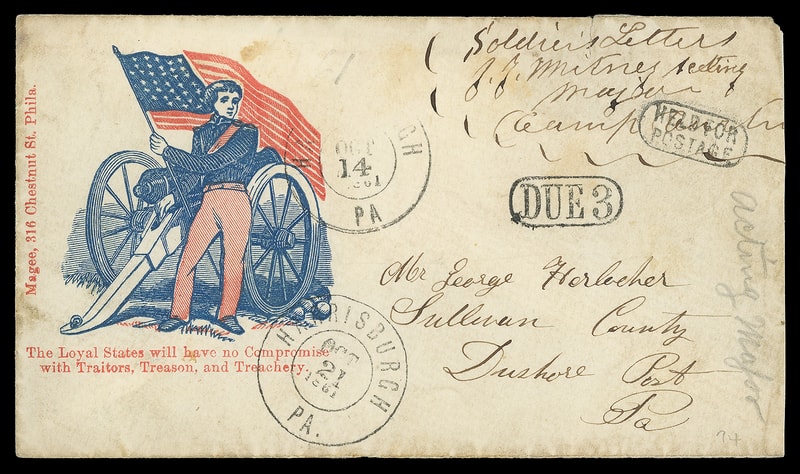 Soldier's Letters
Acting
Major
Camp
HELD FOR
POSTAGE
DUE 3
Mr George Horlocher
Sullivan County
Dushore Post
Pa
Magee, 316 Chestnut St. Phila.
The Loyal States will have no Compromise
with Traitors, Treason, and Treachery.
OCT
14
1861
PA
HARRISBURGH
OCT
21
1861
PA.
acting Major